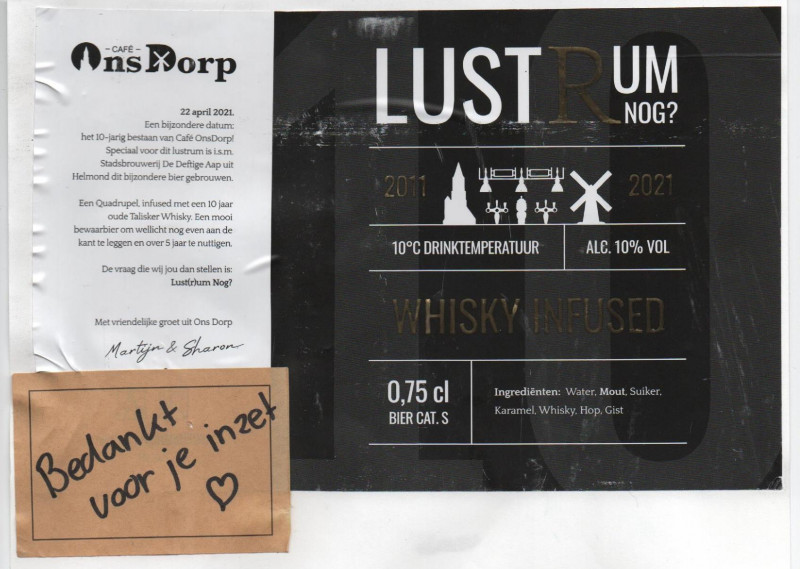 – CAFÉ –
OnsDorp
22 april 2021.
Een bijzondere datum:
het 10-jarig bestaan van Café OnsDorp!
Speciaal voor dit lustrum is i.s.m.
Stadsbrouwerij De Deftige Aap uit
Helmond dit bijzondere bier gebrouwen.
Een Quadrupel, infused met een 10 jaar
oude Talisker Whisky. Een mooi
bewaarbier om wellicht nog even aan de
kant te leggen en over 5 jaar te nuttigen.
De vraag die wij jou dan stellen is:
Lust(r)um Nog?
Met vriendelijke groet uit Ons Dorp
Martijn & Sharon
Bedankt
voor je inzet
♡
10
LUSTRUM
NOG?
2011 2021
10°C DRINKTEMPERATUUR ALC. 10% VOL
WHISKY INFUSED
0,75 cl
BIER CAT. S
Ingrediënten: Water, Mout, Suiker,
Karamel, Whisky, Hop, Gist